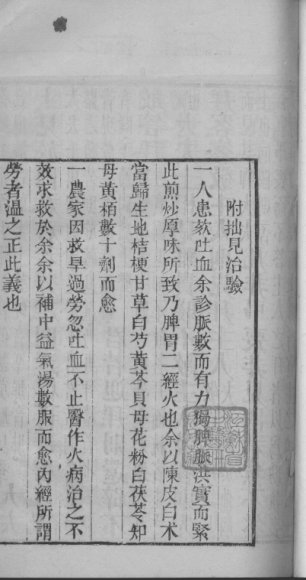 附拙見治驗
一人患欬吐血余診脈數而有力陽脾脈洪實而緊
此煎炒厚味所致乃脾胃二經火也余以陳皮白术
當歸生地桔梗甘草白芍黃芩貝母花粉白茯苓知
母黃栢數十劑而愈
一農家因救旱過勞忽吐血不止醫作火病治之不
效求救於余余以補中益氣湯數服而愈內經所謂
勞者溫之正此義也